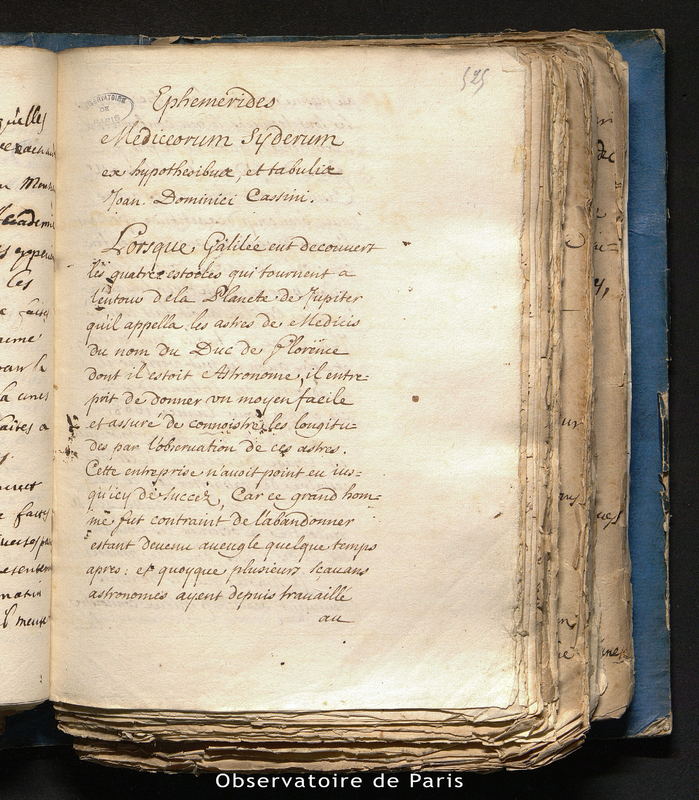 525
OBSERVATOIRE
DE
PARIS
Ephemerides
Mediceorum Syderum
ex hypothesibus et tabulis
Joan. Dominici Cassini.
Lorsque Galilée eut decouvert
les quatre estoeles qui tournent a
l'entour de la Planete de Jupiter
qu'il appella les astres de Medicis
du nom du Duc de Florence
dont il estoit Astronome, il entre=
prit de donner vn moyen facile
et assuré de connoistre les longitu=
des par l'observation de ces astres.
Cette entreprise n'avoit point eu ius=
qu'icy de succez, Car ce grand hom=
me fut contraint de l'abandonner
estant devenu aveugle quelque temps
apres: et quoyque plusieurs sçauans
astronomes ayent depuis travaillé
au
Observatoire de Paris